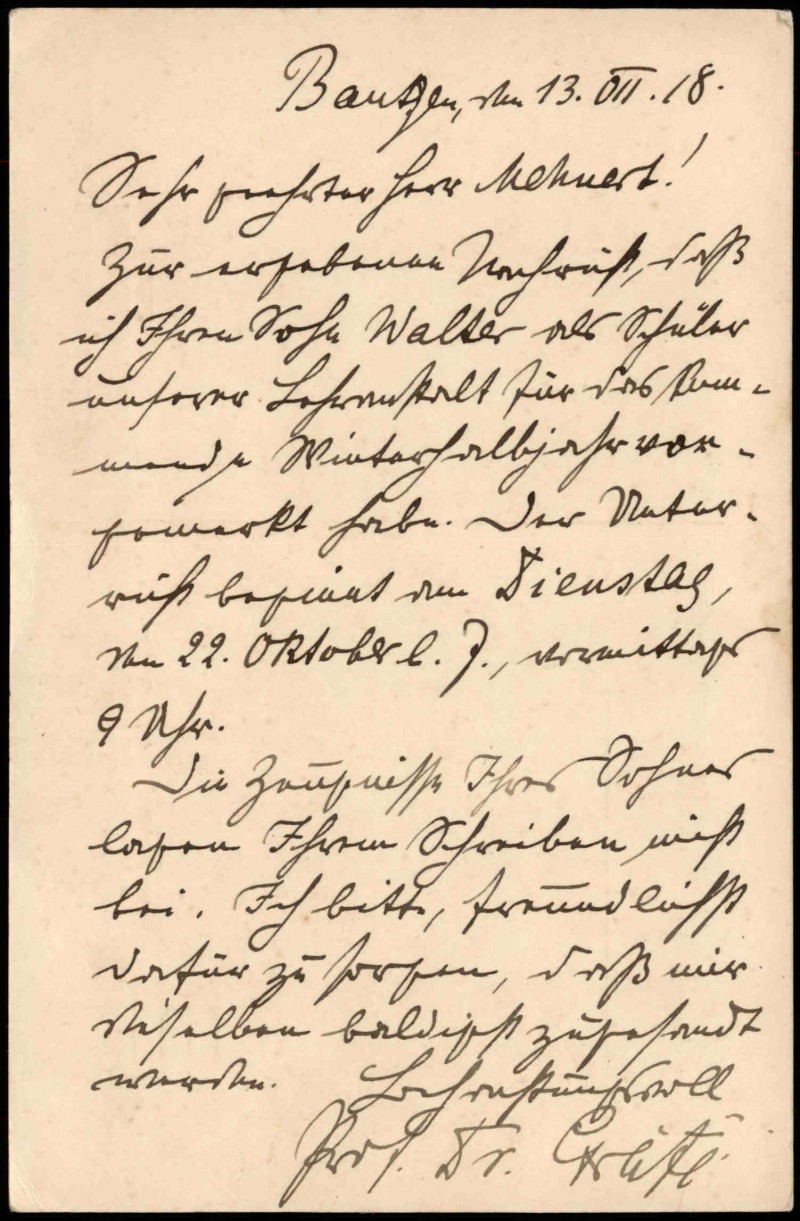 Bautzen, den 13. VII. 18.
Sehr geehrter Herr Mehnert!
Zur ergebenen Nachricht, daß
ich Ihren Sohn Walter als Schüler
unserer Lehranstalt für das kom-
mende Winterhalbjahr vor-
gemerkt habe. Der Unter-
richt beginnt am Dienstag,
den 22. Oktober l. J., vormittags
9 Uhr.
Die Zeugnisse Ihres Sohnes
lagen Ihrem Schreiben nicht
bei. Ich bitte, freundlichst
dafür zu sorgen, daß mir
dieselben baldigst zugesandt
werden. Hochachtungsvoll
Prof. Dr. Gräfe